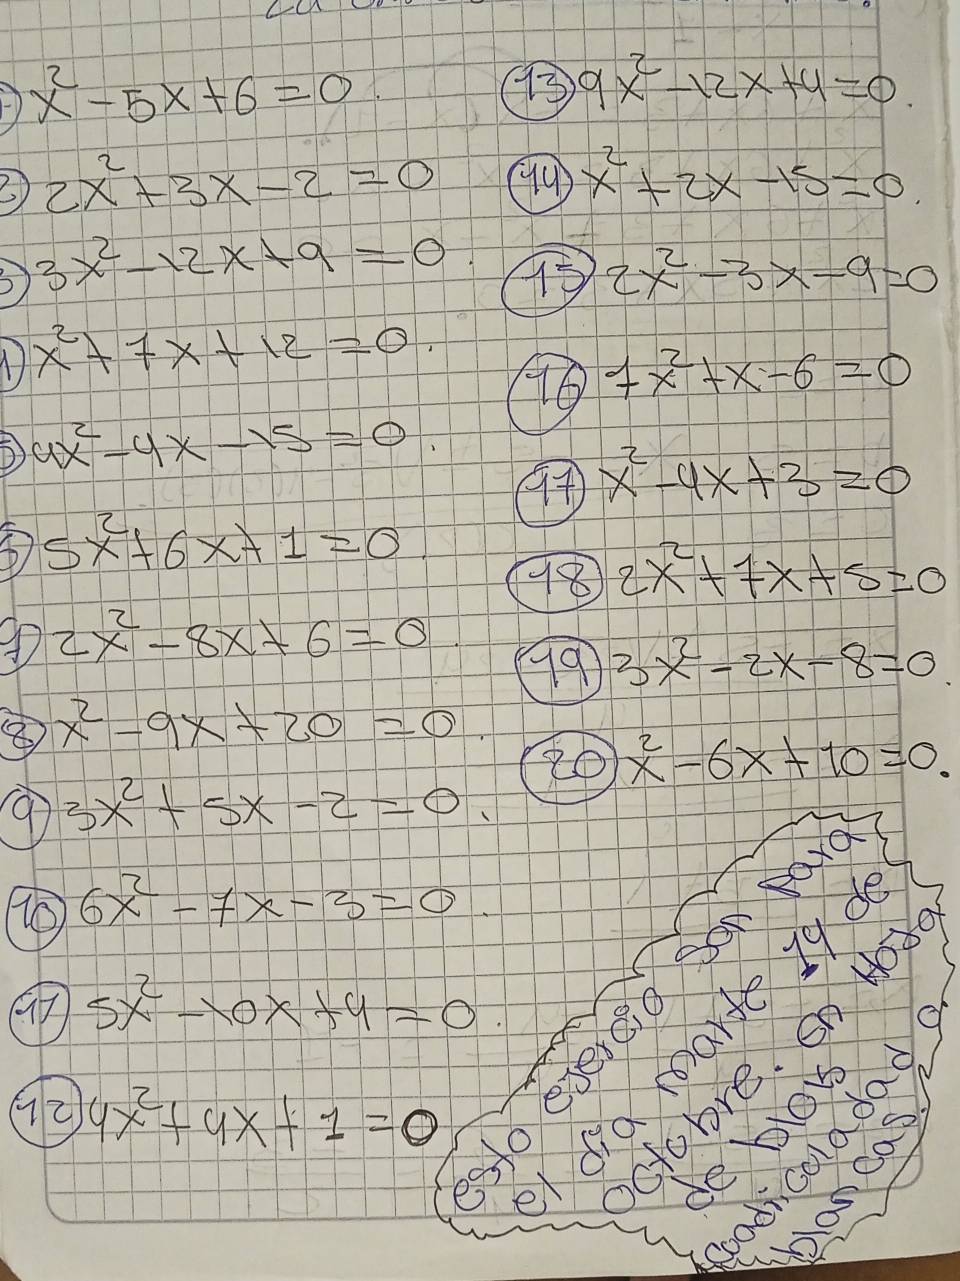 x² - 5x + 6 = 0.
2) 2x² + 3x - 2 = 0
3) 3x² - 12x + 9 = 0.
x² + 7x + 12 = 0.
4x² - 4x - 15 = 0.
5x² + 6x + 1 = 0.
2x² - 8x + 6 = 0.
8) x² - 9x + 20 = 0.
9) 3x² + 5x - 2 = 0.
10) 6x² - 7x - 3 = 0.
11) 5x² - 10x + 4 = 0.
12) 4x² + 4x + 1 = 0
13) 9x² - 12x + 4 = 0.
14) x² + 2x - 15 = 0.
15) 2x² - 3x - 9 = 0
16) 7x² + x - 6 = 0
17) x² - 4x + 3 = 0
18) 2x² + 7x + 5 = 0
19) 3x² - 2x - 8 = 0.
20) x² - 6x + 10 = 0.
esto ejercio son para
el dia marte 14 de
octobre. en Hoja
de blok
blancas.